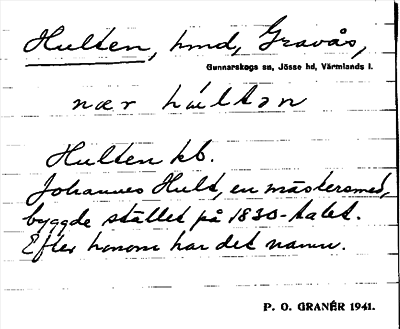 Hulten, hmd, Gravås,
Gunnarskogs sn, Jösse hd, Värmlands l.
nær húltən
Hulten kb.
Johannes Hult, en mästersmed,
byggde stället på 1830-talet.
Efter honom har det namn.
P. O. GRANÉR 1941.